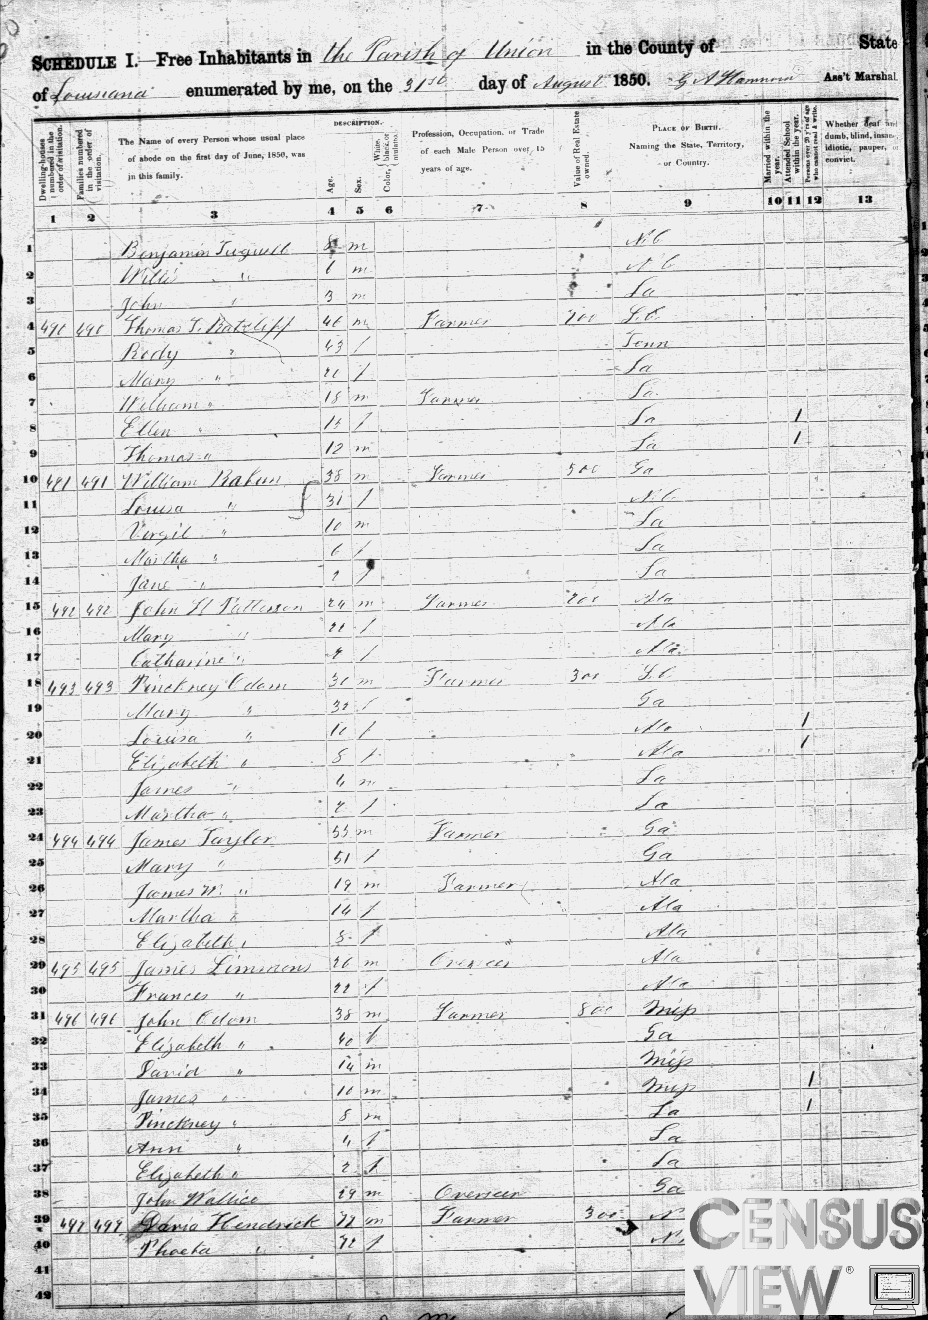 SCHEDULE I.—Free Inhabitants in the Parish of Union in the County of State
of Louisiana enumerated by me, on the 31st day of August 1850. G A Hammon Ass't Marshal
Dwelling-houses numbered in the order of visitation.
Families numbered in the order of visitation.
The Name of every Person whose usual place of abode on the first day of June, 1850, was in this family.
DESCRIPTION.
Age.
Sex.
Color, White, black, or mulatto.
Profession, Occupation, or Trade of each Male Person over 15 years of age.
Value of Real Estate owned.
PLACE OF BIRTH.
Naming the State, Territory, or Country.
Married within the year.
Attended School within the year.
Persons over 20 y'rs of age who cannot read & write.
Whether deaf and dumb, blind, insane, idiotic, pauper, or convict.
1 2 3 4 5 6 7 8 9 10 11 12 13
1 Benjamin Tugwell 8 m N.C
2 Willis " 6 m N C
3 John " 3 m La
4 490 490 Thomas T. Ratcliff 46 m Farmer 700 S.C.
5 Rody " 43 f Tenn
6 Mary " 20 f La
7 William " 18 m Farmer La
8 Ellen " 15 f La 1
9 Thomas " 12 m La 1
10 491 491 William Rabun 38 m Farmer 500 Ga
11 Louisa " 31 f N.C.
12 Vergil " 10 m La
13 Martha " 6 f La
14 Jane " 2 f La
15 492 492 John H Patterson 24 m Farmer 200 Ala
16 Mary " 22 f Ala
17 Catharine " 2 f Ala
18 493 493 Pinckney Odom 30 m Farmer 300 S.C
19 Mary " 32 f Ga
20 Louisa " 10 f Ala 1
21 Elizabeth " 8 f Ala 1
22 James " 4 m La
23 Martha " 2 f La
24 494 494 James Taylor 55 m Farmer Ga
25 Mary " 51 f Ga
26 James W. " 19 m Farmer Ala
27 Martha " 14 f Ala
28 Elizabeth " 8 f Ala
29 495 495 James Simmons 26 m Overseer Ala
30 Frances " 22 f Ala
31 496 496 John Odom 38 m Farmer 800 Miss
32 Elizabeth " 40 f Ga
33 David " 14 m Miss
34 James " 10 m Miss 1
35 Pinckney " 8 m La 1
36 Ann " 4 f La
37 Elizabeth " 2 f La
38 John Wallice 29 m Overseer Ga
39 497 497 Hendrick 72 m Farmer 300 N
40 Pheeta " 72 f N.
41
42
CENSUS
VIEW ®